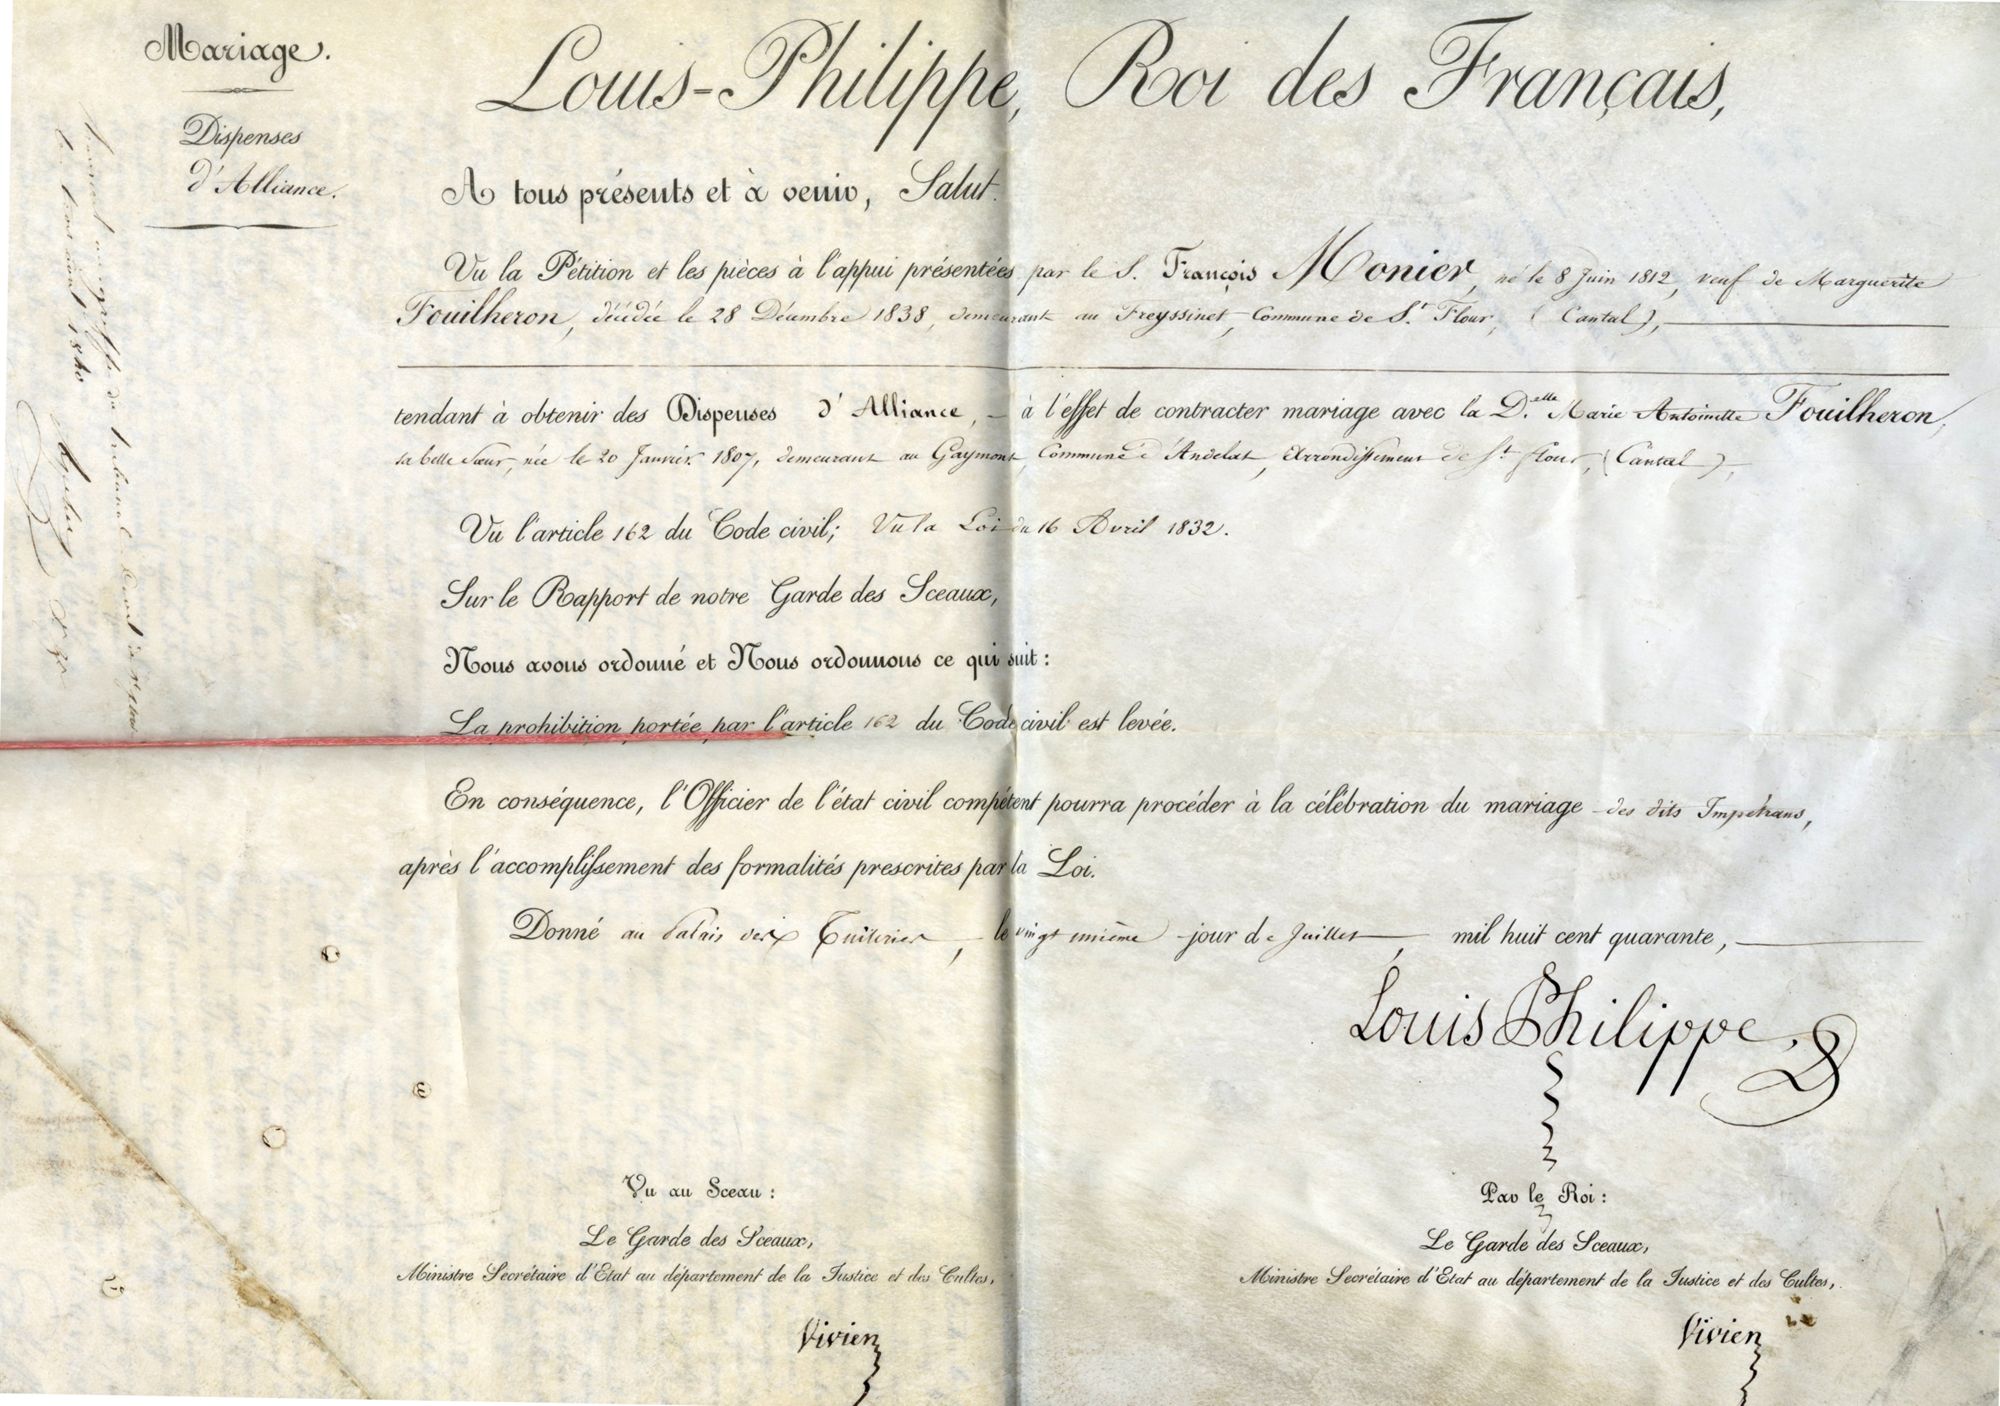 Mariage.
Dispenses
d'Alliance.
Louis-Philippe, Roi des Français,
A tous présents et à venir, Salut.
Vu la Pétition et les pièces à l'appui présentées par le S. François Monier, né le 8 Juin 1812, veuf de Marguerite
Fouilheron, décédée le 28 Décembre 1838, demeurant au Freyssinet, Commune de St. Flour, (Cantal),
tendant à obtenir des Dispenses d'Alliance, à l'effet de contracter mariage avec la D.elle Marie Antoinette Fouilheron,
sa belle Sœur, née le 20 Janvier 1807, demeurant au Gaymont, Commune d'Andelat, Arrondissement de St. flour, (Cantal),
Vu l'article 162 du Code civil; Vu la Loi du 16 Avril 1832.
Sur le Rapport de notre Garde des Sceaux,
Nous avons ordonné et Nous ordonnons ce qui suit :
La prohibition portée par l'article 162 du Code civil est levée.
En conséquence, l'Officier de l'état civil compétent pourra procéder à la célébration du mariage des dits Impétrans,
après l'accomplissement des formalités prescrites par la Loi.
Donné au Palais des Tuileries, le vingt unième jour de Juillet, mil huit cent quarante,
Louis Philippe
Vu au Sceau :
Le Garde des Sceaux,
Ministre Secrétaire d'Etat au département de la Justice et des Cultes,
Vivien
Par le Roi :
Le Garde des Sceaux,
Ministre Secrétaire d'Etat au département de la Justice et des Cultes,
Vivien
au greffe du tribunal Civil de St flour
août 1840